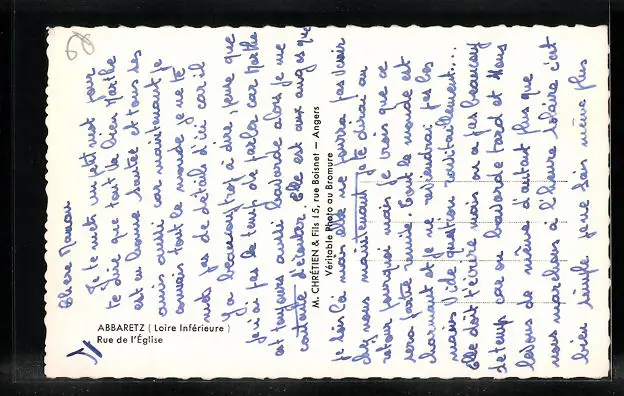 Chère Maman
Je te mets un petit mot pour
te dire que tout va bien Marthe
est en bonne santée et tous les
amis aussi car maintenant je
connais tout le monde je ne te
mets pas de détails d'ici car il
y a beaucoup trop à dire, parce que
j'ai pas le temps de parler car Marthe
est toujours aussi bavarde alors je me
contente d'écouter. Elle est aux anges que
je sois là mais elle ne pourra pas venir
chez nous maintenant je te dirai au
retour pourquoi mais je crois que ce
sera partie remise. Tout le monde est
charmant et je ne reviendrai pas les
mains vide question ravitaillement...
Elle doit t'écrire mais on a pas beaucoup
de temps car on bavarde tard et nous
levons de même d'autant plus que
nous marchons à l'heure solaire c'est
bien simple je ne sais même plus
M. CHRÉTIEN & Fils 15, rue Boisnet — Angers
Véritable Photo au Bromure
ABBARETZ ( Loire Inférieure )
Rue de l'Église